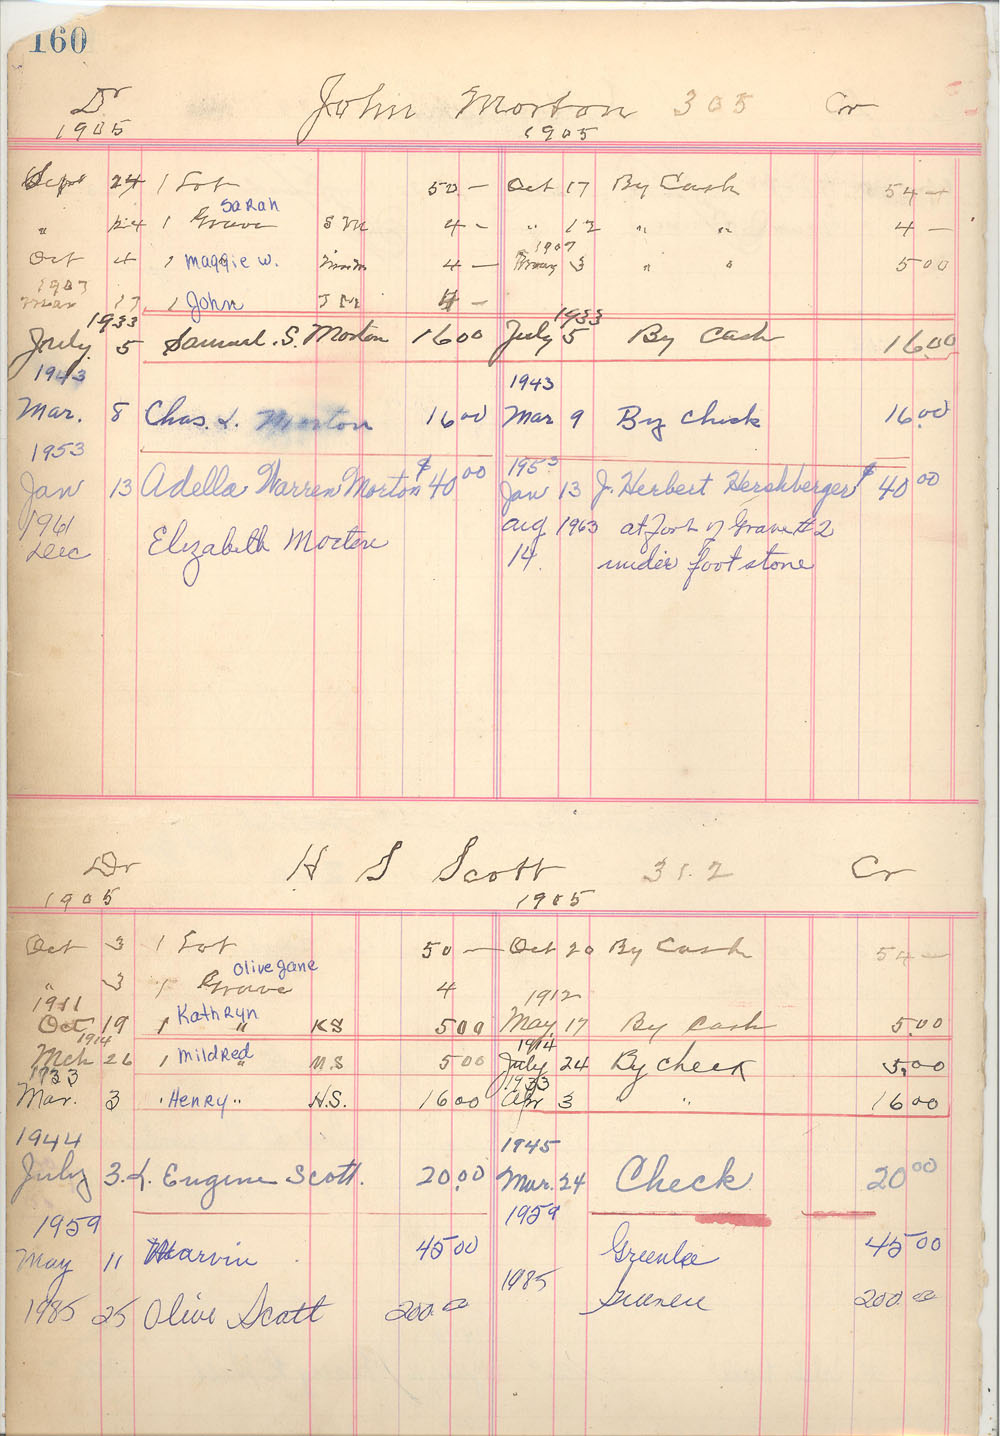 160
Dr John Morton 305 Cr
1905 1905
Sept 24 1 Lot 50 - Oct 17 By Cash 54 -
Sarah
" 24 1 Grave S M 4 - " 12 " " 4 -
1907
Oct 4 1 Maggie W. 4 - May 3 " " 5 00
1907
Mar 17 1 John J M 4 -
1933 1933
July 5 Samuel. S. Morton 16 00 July 5 By Cash 16.00
1943 1943
Mar. 8 Chas. L. Morton 16 00 Mar 9 By check 16.00
1953 1953
Jan 13 Adella Warren Morton $40 00 Jan 13 J. Herbert Hershberger $40 00
1961 Aug 1963 at foot of Grave #2
Dec Elizabeth Morton 14. under foot stone
Dr H S Scott 312 Cr
1905 1905
Oct 3 1 Lot 50 - Oct 20 By Cash 54 -
Olive Jane
" 3 1 Grave 4
1911 1912
Oct 19 1 Kathryn " K S 5 00 May 17 By Cash 5.00
1914 1914
Mch 26 1 Mildred " M.S 5 00 July 24 By check 5.00
1933 1933
Mar. 3 " Henry " H.S. 16 00 Apr 3 " " 16 00
1944 1945
July 3. L. Eugene Scott. 20.00 Mar. 24 Check 20 00
1959 1959
May 11 Marvin 45 00 Greenlee 45 00
1985
1985 25 Olive Scott 200.00 200 00